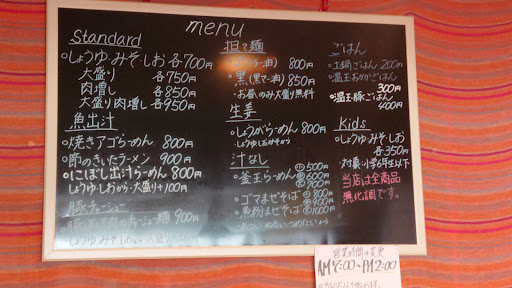 menu
Standard
・しょうゆ・みそ・しお 各700円
大盛り 各750円
肉増し 各850円
大盛り肉増し 各950円
魚出汁
・焼きアゴらーめん 800円
・節のきいたラーメン 900円
・にぼし出汁らーめん 800円
しょうゆしおから・大盛り+100円
豚チャーシュー
チャーシュー麺 900円
担々麺
800円
・黒(黒マー油) 850円
・お昼のみ大盛り無料
生姜
・しょうがらーめん 800円
しょうゆしおみそから
汁なし
・釜玉らーめん 小500円
中600円
大700円
・ゴマまぜそば 中800円
大900円
・魚粉まぜそば 中900円
大1000円
ごはん
・土鍋ごはん 200円
・温玉おかかごはん
300円
・温玉豚ごはん
400円
Kids
・しょうゆ・みそ・しお
各350円
・対象:小学6年生以下
当店は全商品
無化調です。
営業時間の変更